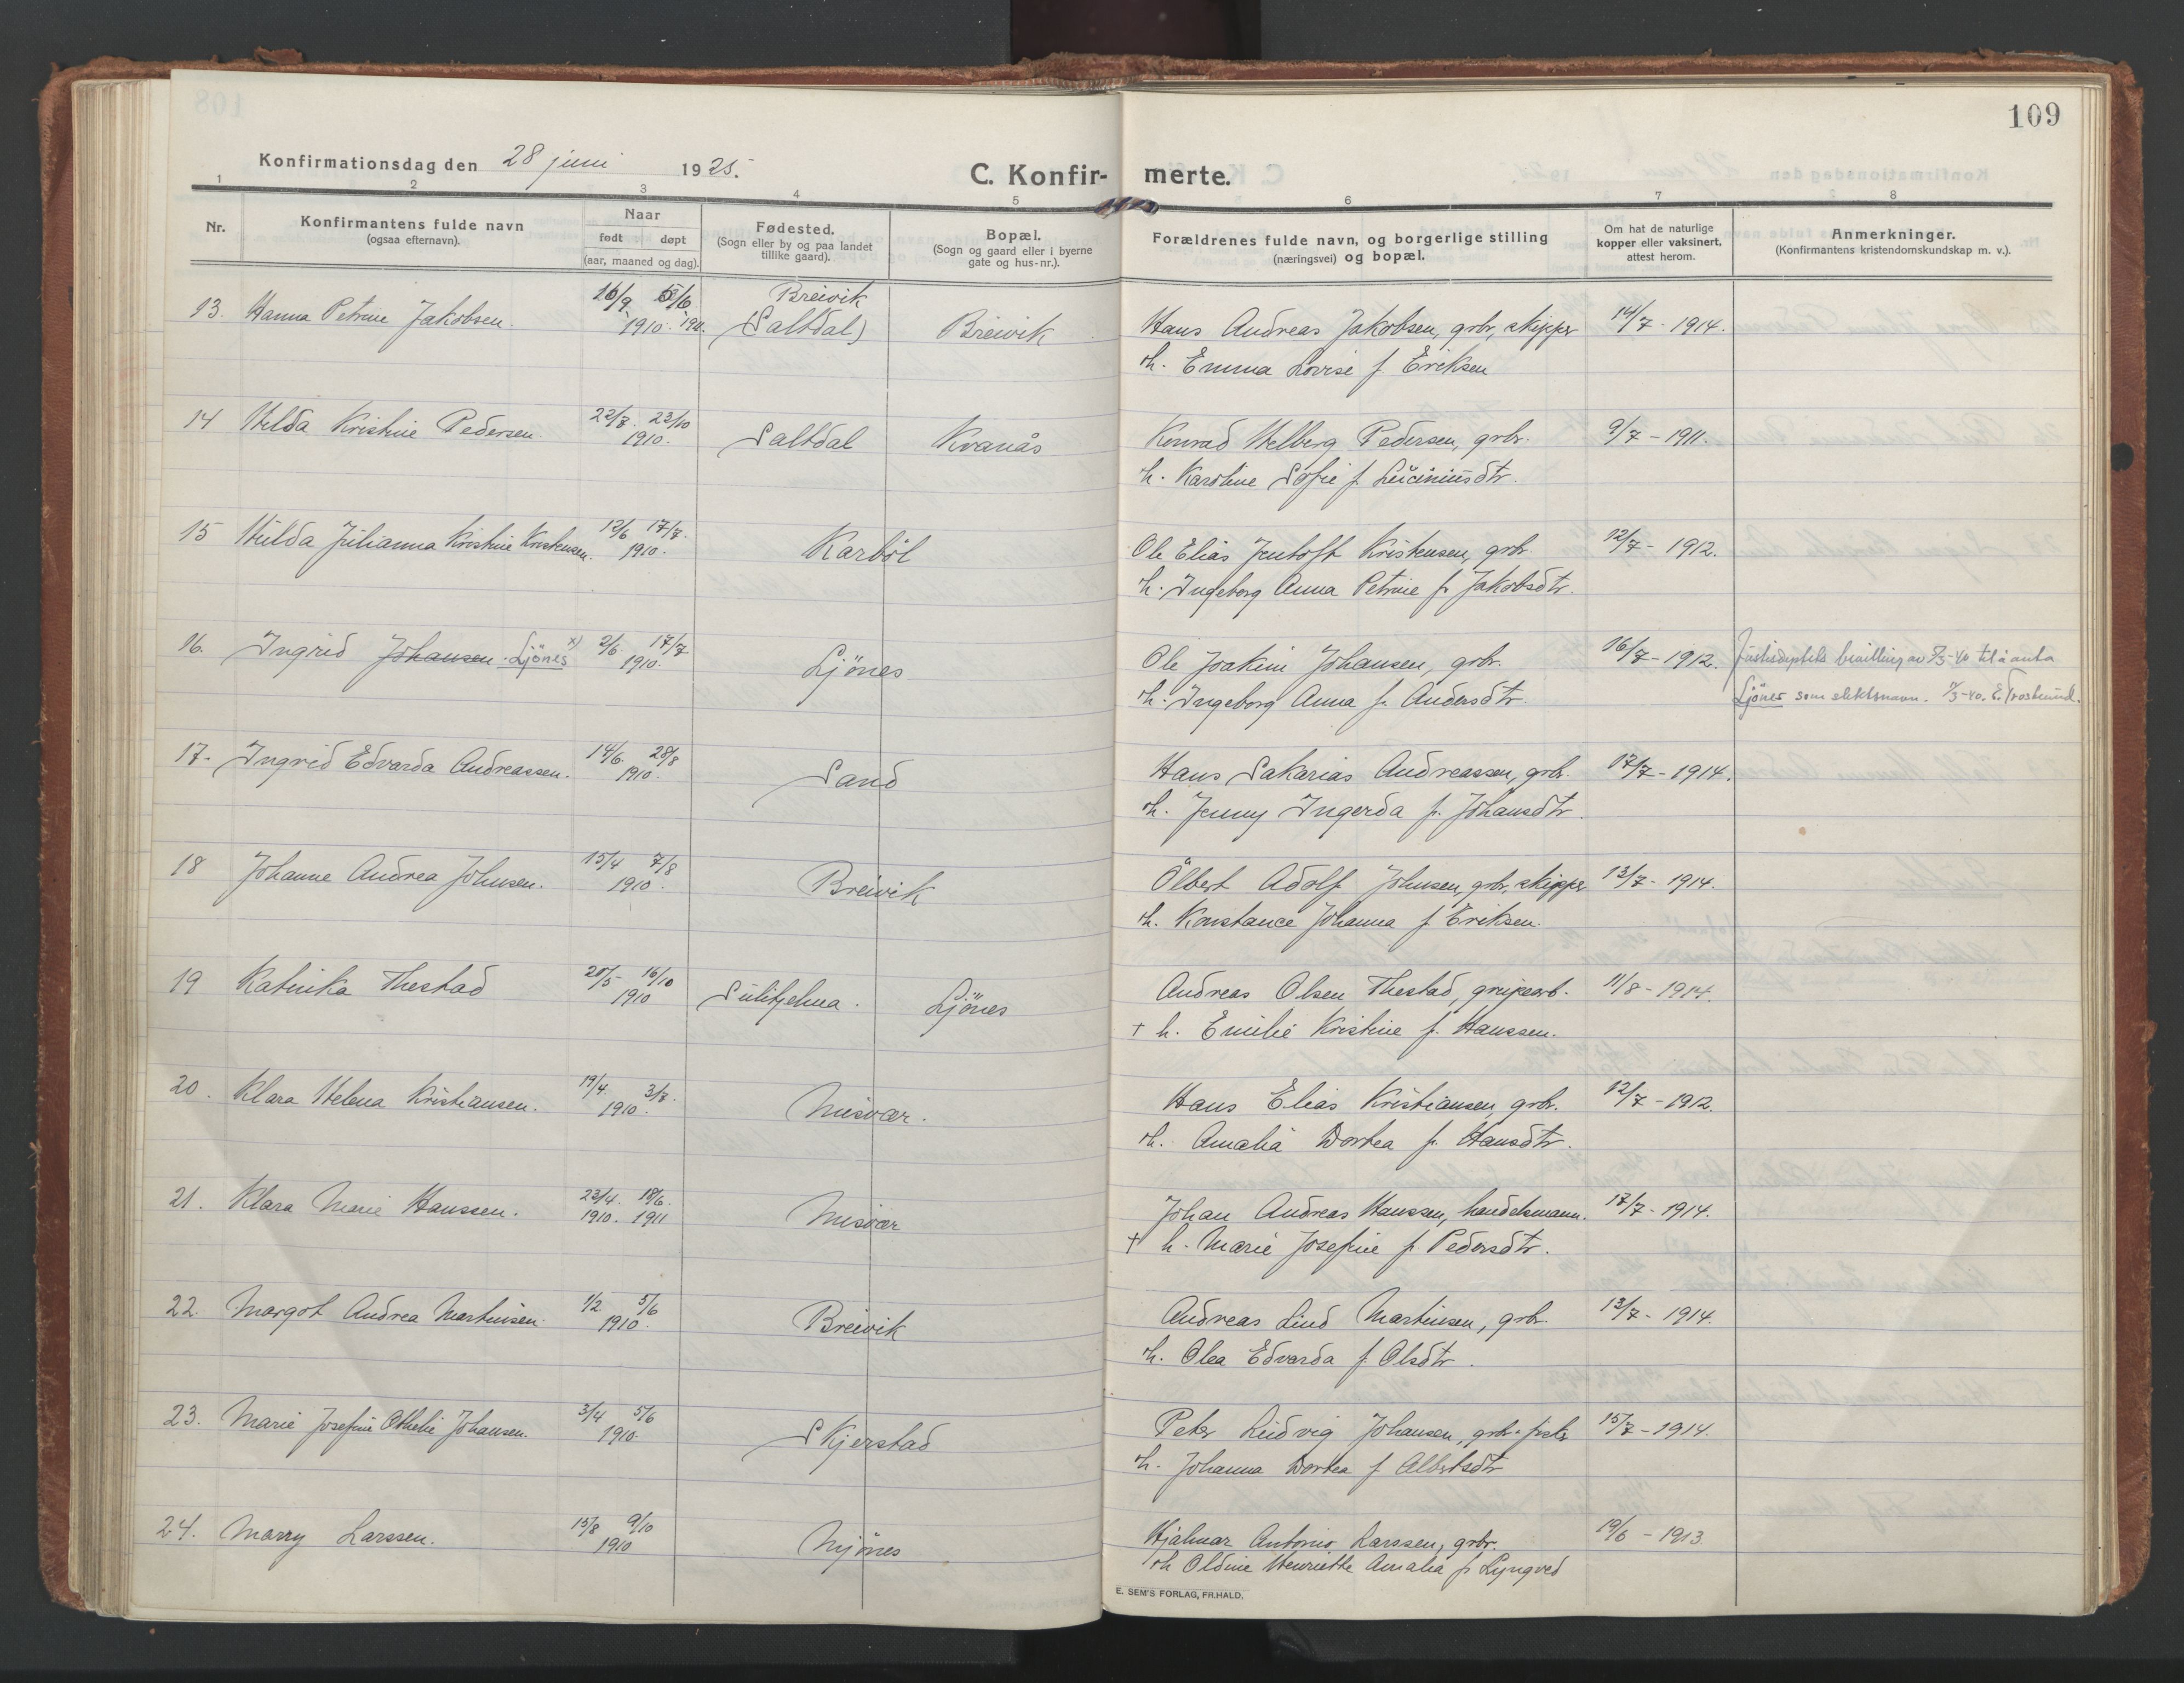 109
Konfirmationsdag den 28 juni 1925.
C. Konfir- merte.
1 2 3 4 5 6 7 8
Nr.
Konfirmantens fulde navn
(ogsaa efternavn).
Naar
født døpt
(aar, maaned og dag).
Fødested.
(Sogn eller by og paa landet
tillike gaard).
Bopæl.
(Sogn og gaard eller i byerne
gate og hus-nr.).
Forældrenes fulde navn, og borgerlige stilling
(næringsvei) og bopæl.
Om hat de naturlige
kopper eller vaksinert,
attest herom.
Anmerkninger.
(Konfirmantens kristendomskundskap m. v.).
13. Hanna Petrine Jakobsen. 16/9 1910. 5/6 1911. Breivik (Saltdal) Breivik Hans Andreas Jakobsen, grbr, skipper 14/7 - 1914.
h. Emma Lovise f. Eriksen
14 Hilda Kristine Pedersen. 22/8. 23/10 1910. Saltdal Kvanås Konrad Helberg Pedersen, grbr. 9/7 - 1911.
h. Karoline Sofie f. Luciniusdtr.
15 Hilda Julianna Kristine Kristensen. 12/6 17/7. 1910. Karbøl Ole Elias Jentoft Kristensen, grbr. 12/7 - 1912.
h. Ingeborg Anna Petrine f. Jakobsdtr.
16. Ingrid Johansen. Ljönes x) 2/6. 17/7 1910. Ljönes Ole Joakim Johansen, grbr. 16/7 - 1912. Justisdeptets bevilling av 5/3-40 til å anta
h. Ingeborg Anna f. Andersdtr. Ljönes som slektsnavn.
17. Ingrid Edvarda Andreassen. 14/6. 28/8 1910. Sand Hans Sakarias Andreassen, grbr. 17/7 - 1914.
h. Jenny Ingerda f. Johansdtr.
18 Johanne Andrea Johnsen. 15/4 7/8 1910. Breivik Ölbert Adolf Johnsen, grbr, skipper 13/7 - 1914.
h. Konstance Johanna f. Eriksen.
19 Katinka Thestad 20/5 16/10 1910 Sulitjelma. Ljönes Andreas Olsen Thestad, grubearb. 11/8 - 1914.
+ h. Emilie Kristine f. Hanssen.
20. Klara Helena Kristiansen. 19/4. 3/7. 1910. Misvær. Hans Elias Kristiansen, grbr. 12/7 - 1912.
h. Amalia Dortea f. Hansdtr.
21. Klara Marie Hanssen. 23/4. 1910. 18/6. 1911 Misvær Johan Andreas Hanssen, handelsmann. 17/7 - 1914.
+ h. Marie Josefine f. Pedersdtr.
22. Margot Andrea Martinsen. 1/2. 5/6 1910. Breivik Andreas Lind Martinsen, grbr. 13/7 - 1914.
h. Olea Edvarda f. Olsdtr.
23. Marie Josefine Othelie Johansen. 3/4 5/6 1910. Skjerstad Peter Ludvig Johansen, grbr. fisker 15/7 - 1914.
h. Johanna Dortea f Albertsdtr
24. Marry Larssen. 15/8 9/10 1910 Mjönes Hjalmar Antonio Larssen, grbr. 19/6 - 1913.
h Oldine Henriette Amalia f Lyngved
E. SEM'S FORLAG, FR.HALD.